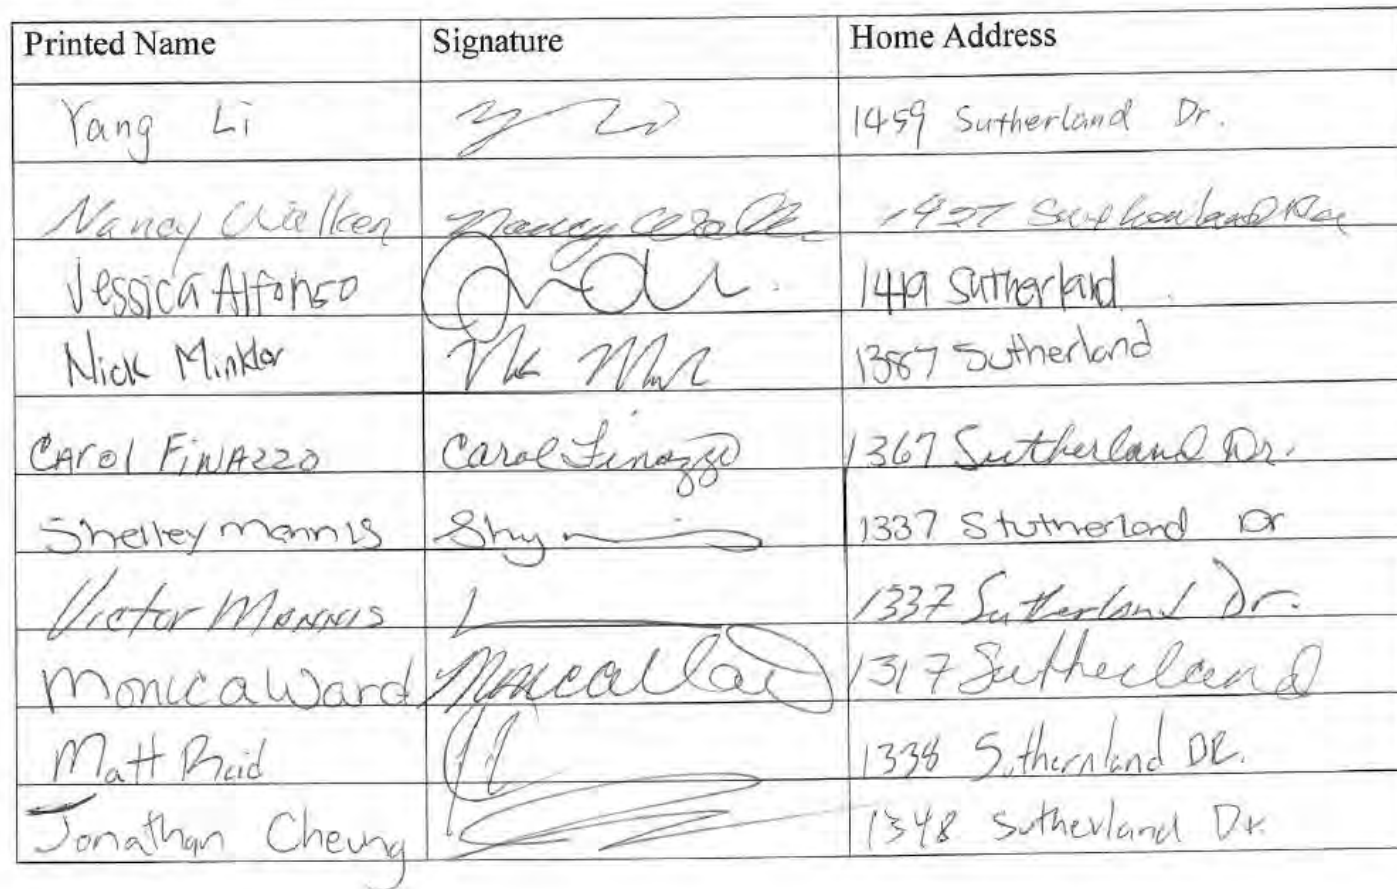 Printed Name Signature Home Address
Yang Li 1459 Sutherland Dr.
Nancy Walker Nancy 1427
Jessica Alfonso 1419 Sutherland
Nick Minkler 1387 Sutherland
CAROl FiNAzzo Carol Finazzo 1367 Sutherland Dr.
Shelley mannis 1337 Stutherland Dr
Victor Mannis 1337 Sutherland Dr.
Monica Ward 1317 Sutherland
Matt Reid 1338 DR.
Jonathan Cheung 1348 Sutherland Dr.